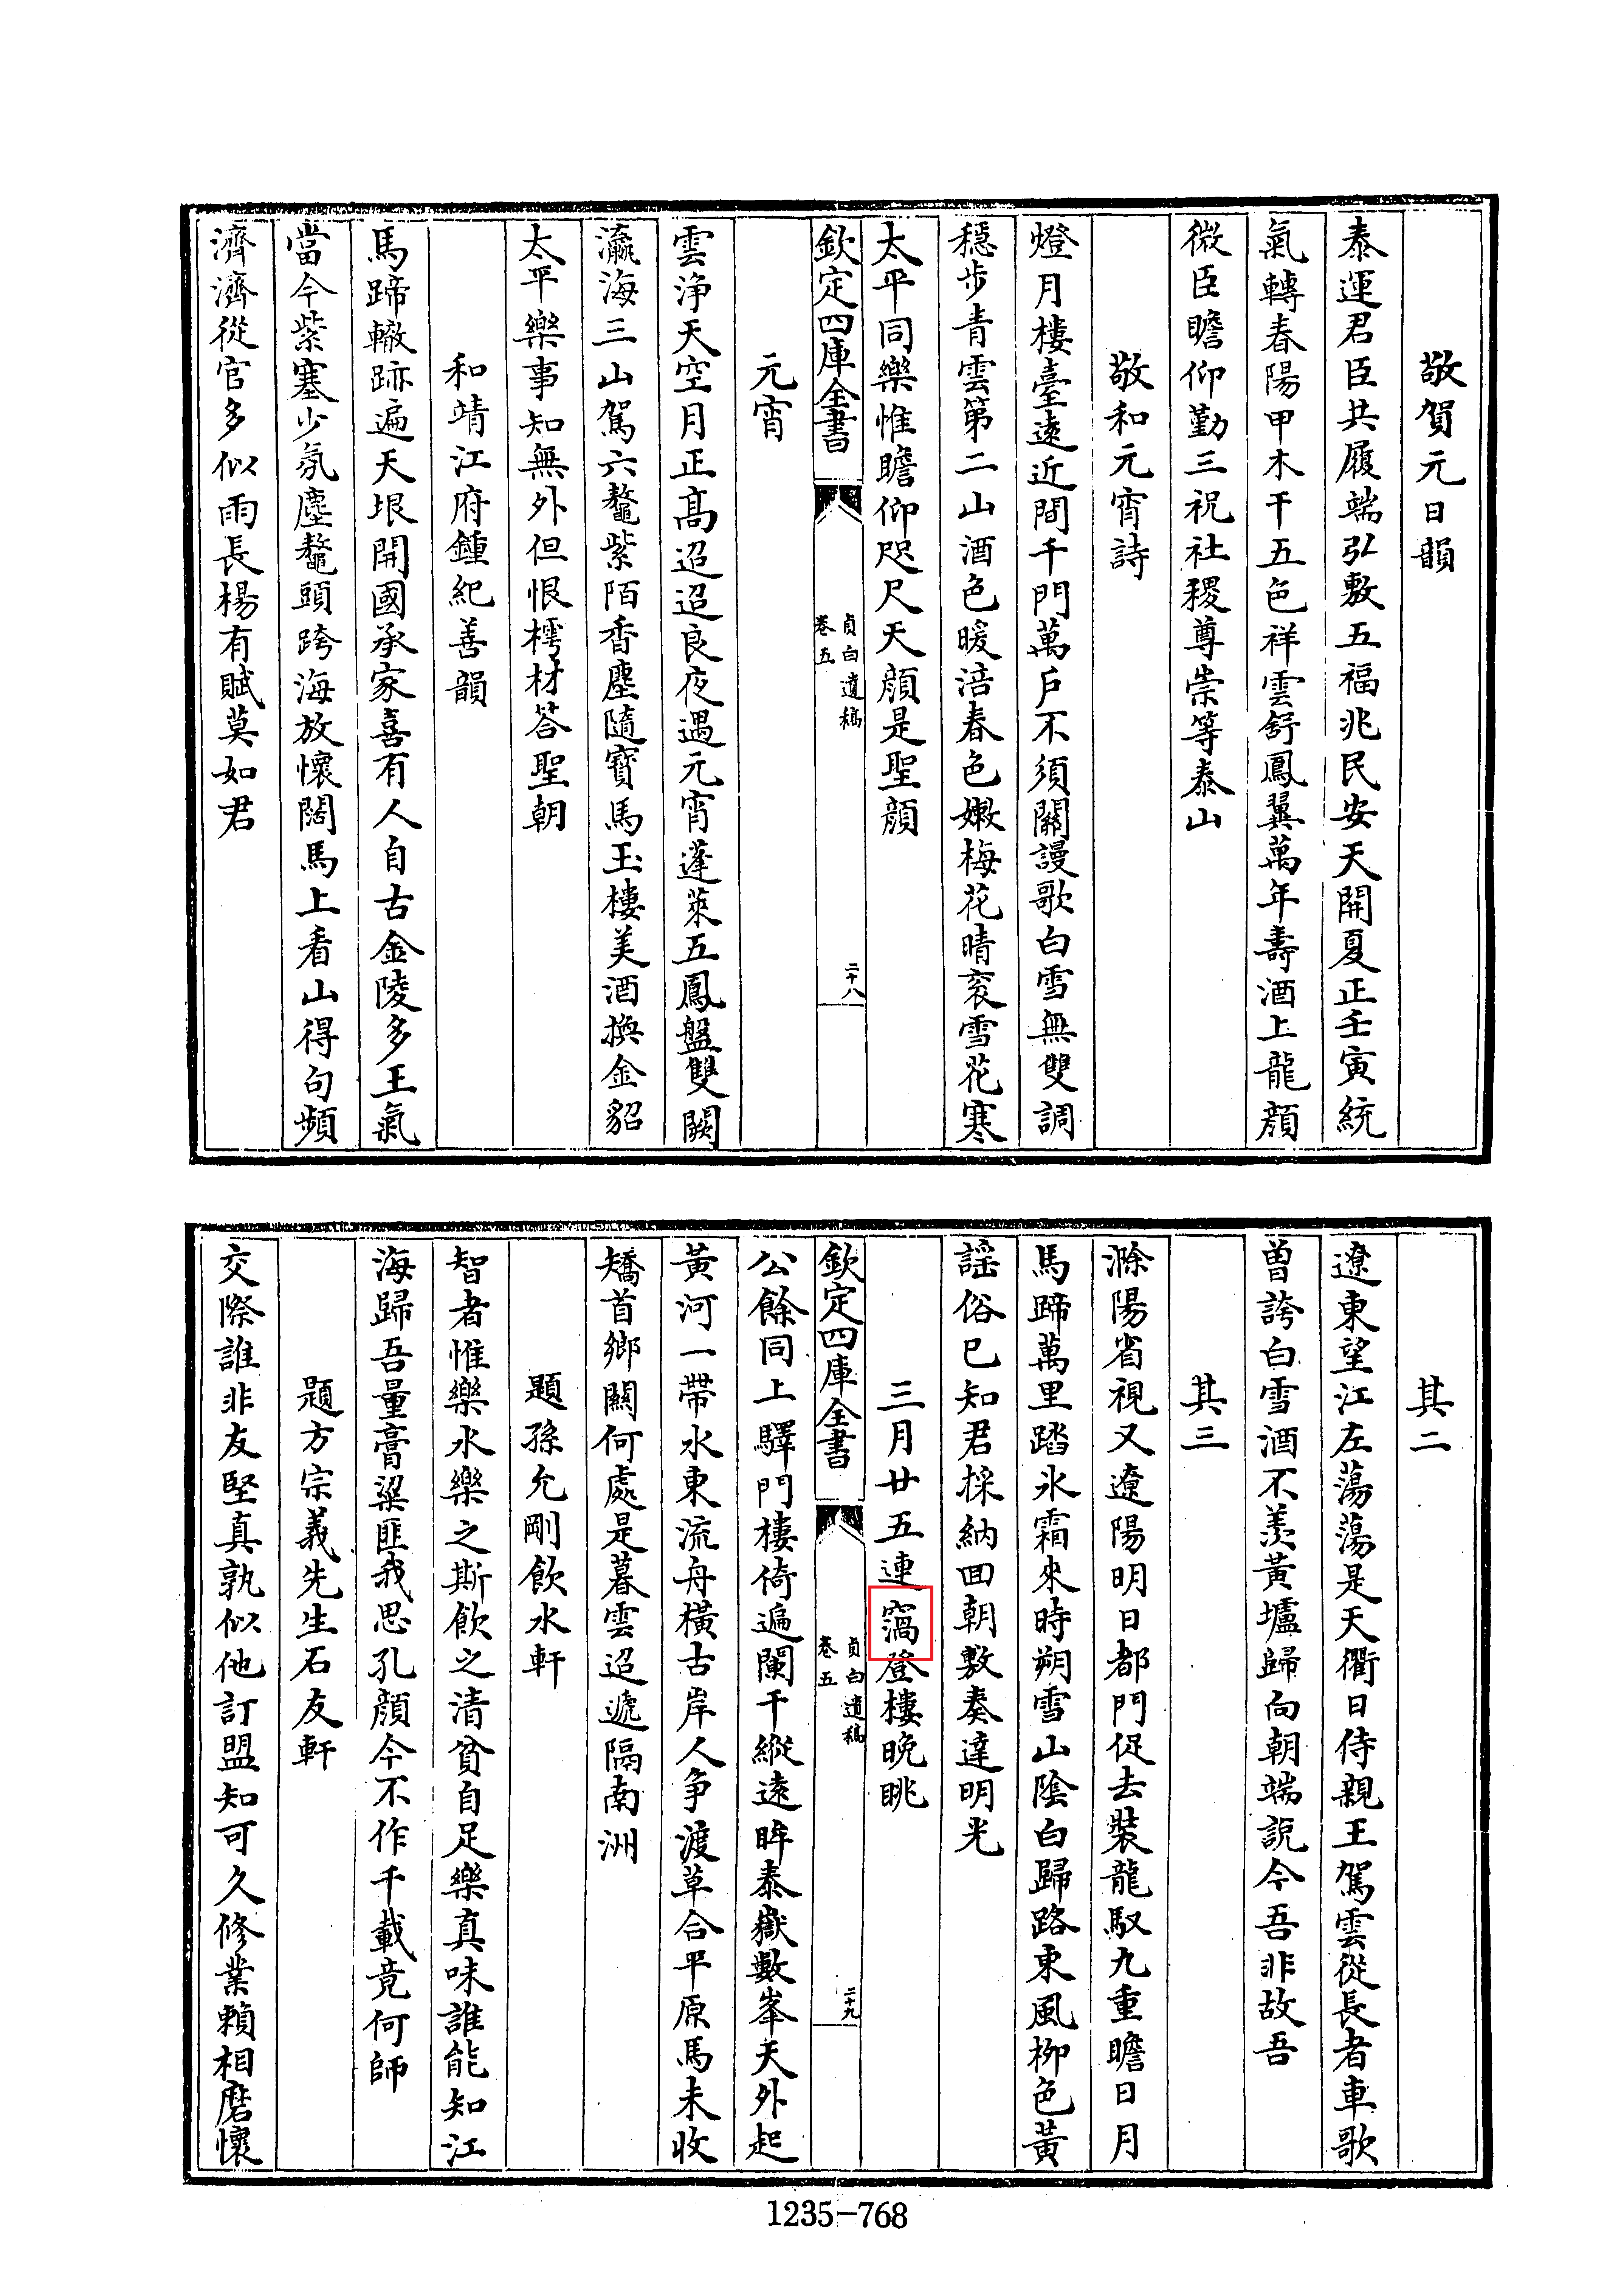 敬賀元日韻
泰運君臣共履端弘敷五福兆民安天開夏正壬寅統
氣轉春陽甲木干五色祥雲舒鳳翼萬年壽酒上龍顔
微臣瞻仰勤三祝社稷尊崇等泰山
敬和元宵詩
燈月樓臺遠近間千門萬戶不須關謾歌白雪無雙調
穩步青雲第二山酒色暖涪春色嫩梅花晴衮雪花寒
太平同樂惟瞻仰咫尺天顔是聖顔
欽定四庫全書
貞白遺稿
卷五
二十八
元宵
雲浄天空月正髙迢迢良夜遇元宵蓬萊五鳳盤雙闕
瀛海三山駕六鼇紫陌香塵隨寶馬玉樓美酒換金貂
太平樂事知無外但恨樗材答聖朝
和靖江府鍾紀善韻
馬蹄轍跡遍天垠開國承家喜有人自古金陵多王氣
當今紫塞少氛塵鼇頭跨海放懷闊馬上看山得句頻
濟濟從官多似雨長楊有賦莫如君
其二
遼東望江左蕩蕩是天衢日侍親王駕雲從長者車歌
曽誇白雪酒不羨黃壚歸向朝端說今吾非故吾
其三
滁陽省視又遼陽明日都門促去裝龍馭九重瞻日月
馬蹄萬里踏氷霜來時朔雪山陰白歸路東風柳色黃
謡俗已知君採納囬朝敷奏達明光
三月廿五連窩登樓晚眺
欽定四庫全書
貞白遺稿
卷五
二十九
公餘同上驛門樓倚遍闌干縱遠眸泰嶽數峯天外起
黃河一帶水東流舟橫古岸人争渡草合平原馬未收
矯首鄉關何處是暮雲迢遞隔南洲
題孫允剛飲水軒
智者惟樂水樂之斯飲之清貧自足樂真味誰能知江
海歸吾量膏粱匪我思孔顔今不作千載竟何師
題方宗義先生石友軒
交際誰非友堅真孰似他訂盟知可久修業賴相磨懷
1235-768